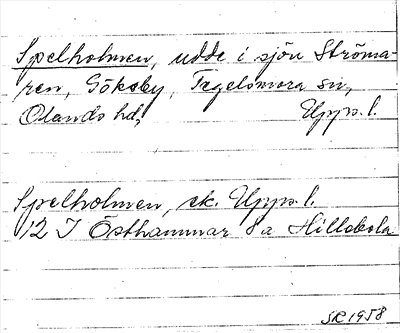 Spelholmen, udde i sjön Ströma-
ren, Göksby, Tegelsmora sn,
Olands hd, Upps. l.
Spelholmen, ek. Upps. l.
12 I Östhammar 8 a Hillebola
SR 1958